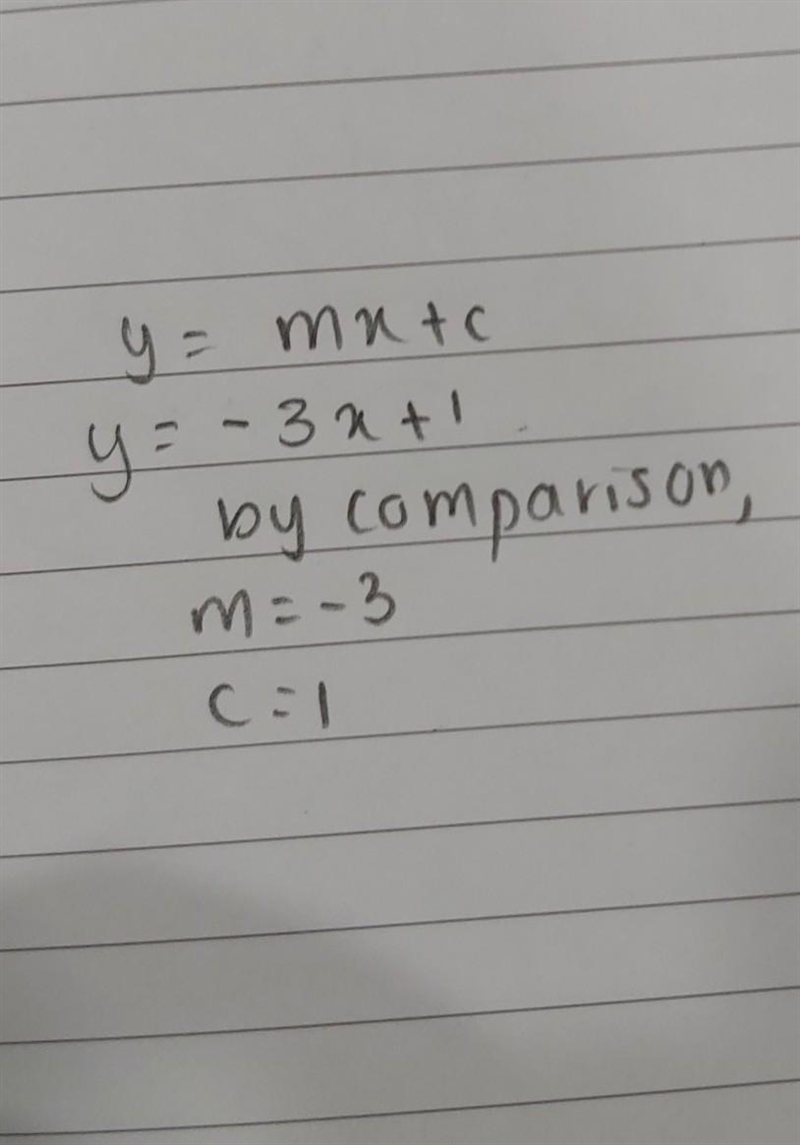 y = mx + c
y = - 3x + 1
by comparison,
m = - 3
c = 1